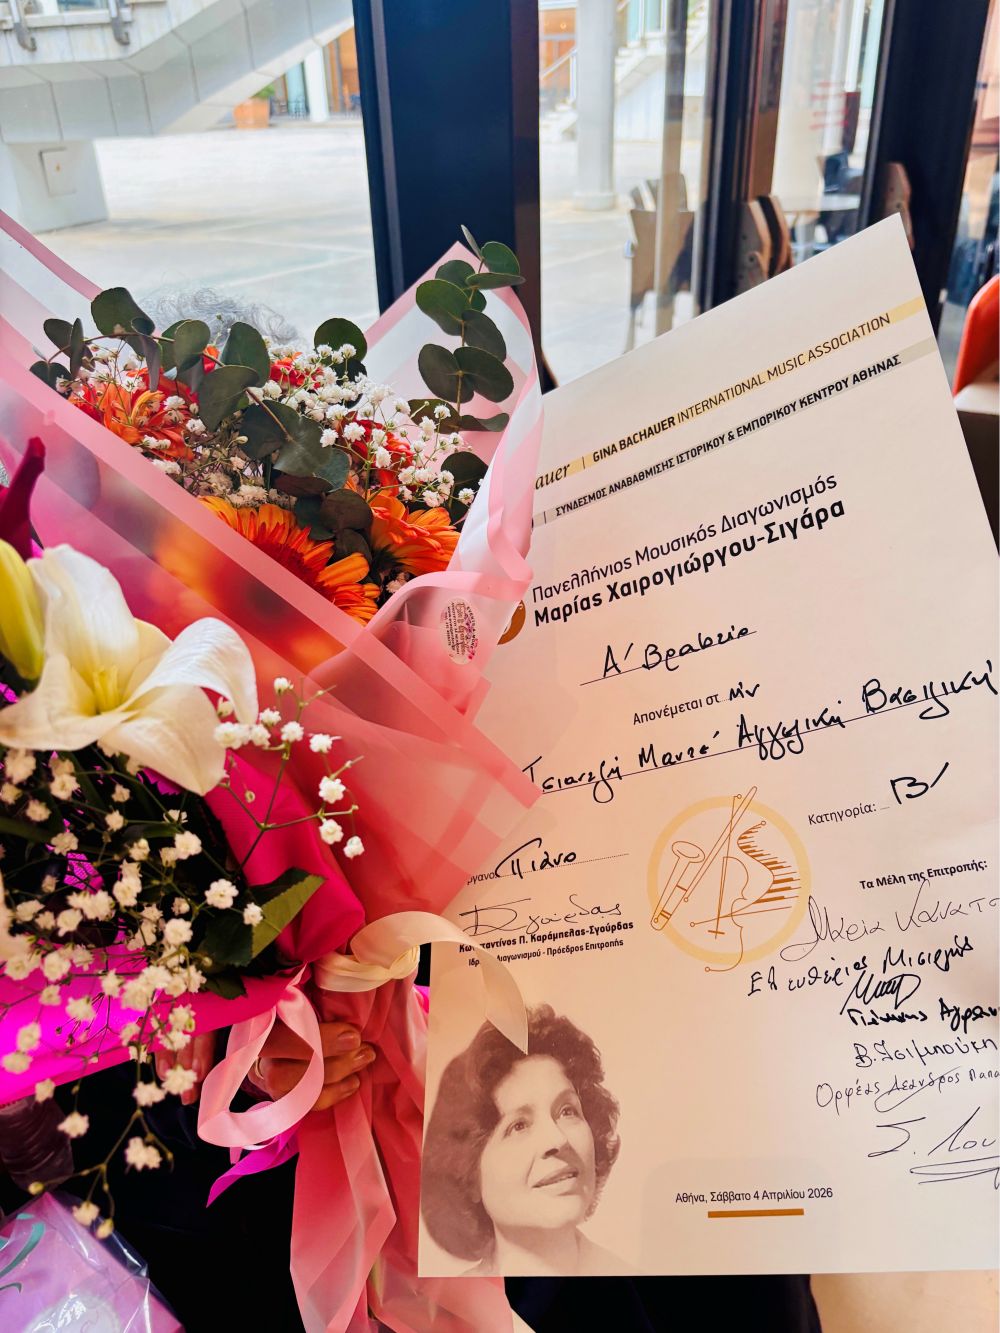 auer | GINA BACHAUER INTERNATIONAL MUSIC ASSOCIATION
| ΣΥΝΔΕΣΜΟΣ ΑΝΑΒΑΘΜΙΣΗΣ ΙΣΤΟΡΙΚΟΥ & ΕΜΠΟΡΙΚΟΥ ΚΕΝΤΡΟΥ ΑΘΗΝΑΣ
Πανελλήνιος Μουσικός Διαγωνισμός
Μαρίας Χαιρογιώργου-Σιγάρα
Α΄ Βραβείο
Απονέμεται στ...ην
Τσιαντζή Μαντώ Αγγελική Βασιλική
Κατηγορία: Β΄
ργανο Πιάνο
Τα Μέλη της Επιτροπής:
Κωνσταντίνος Π. Καράμπελας-Σγούρδας
Ιδρ Διαγωνισμού - Πρόεδρος Επιτροπής
Μαρία
Ελευθέριος
Γιάννης
Β. Τσιμπούκη
Ορφέας Λέανδρος Παπα
Αθήνα, Σάββατο 4 Απριλίου 2026